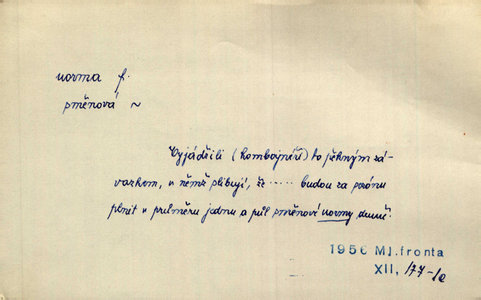 norma f.
směnová ~
Vyjádřili (kombajnéři) to pěkným zá-
vazkem, v němž slibují, že ..... budou za sezónu
plnit v průměru jednu a půl směnové normy denně.
1956 Ml.fronta
XII, 177-